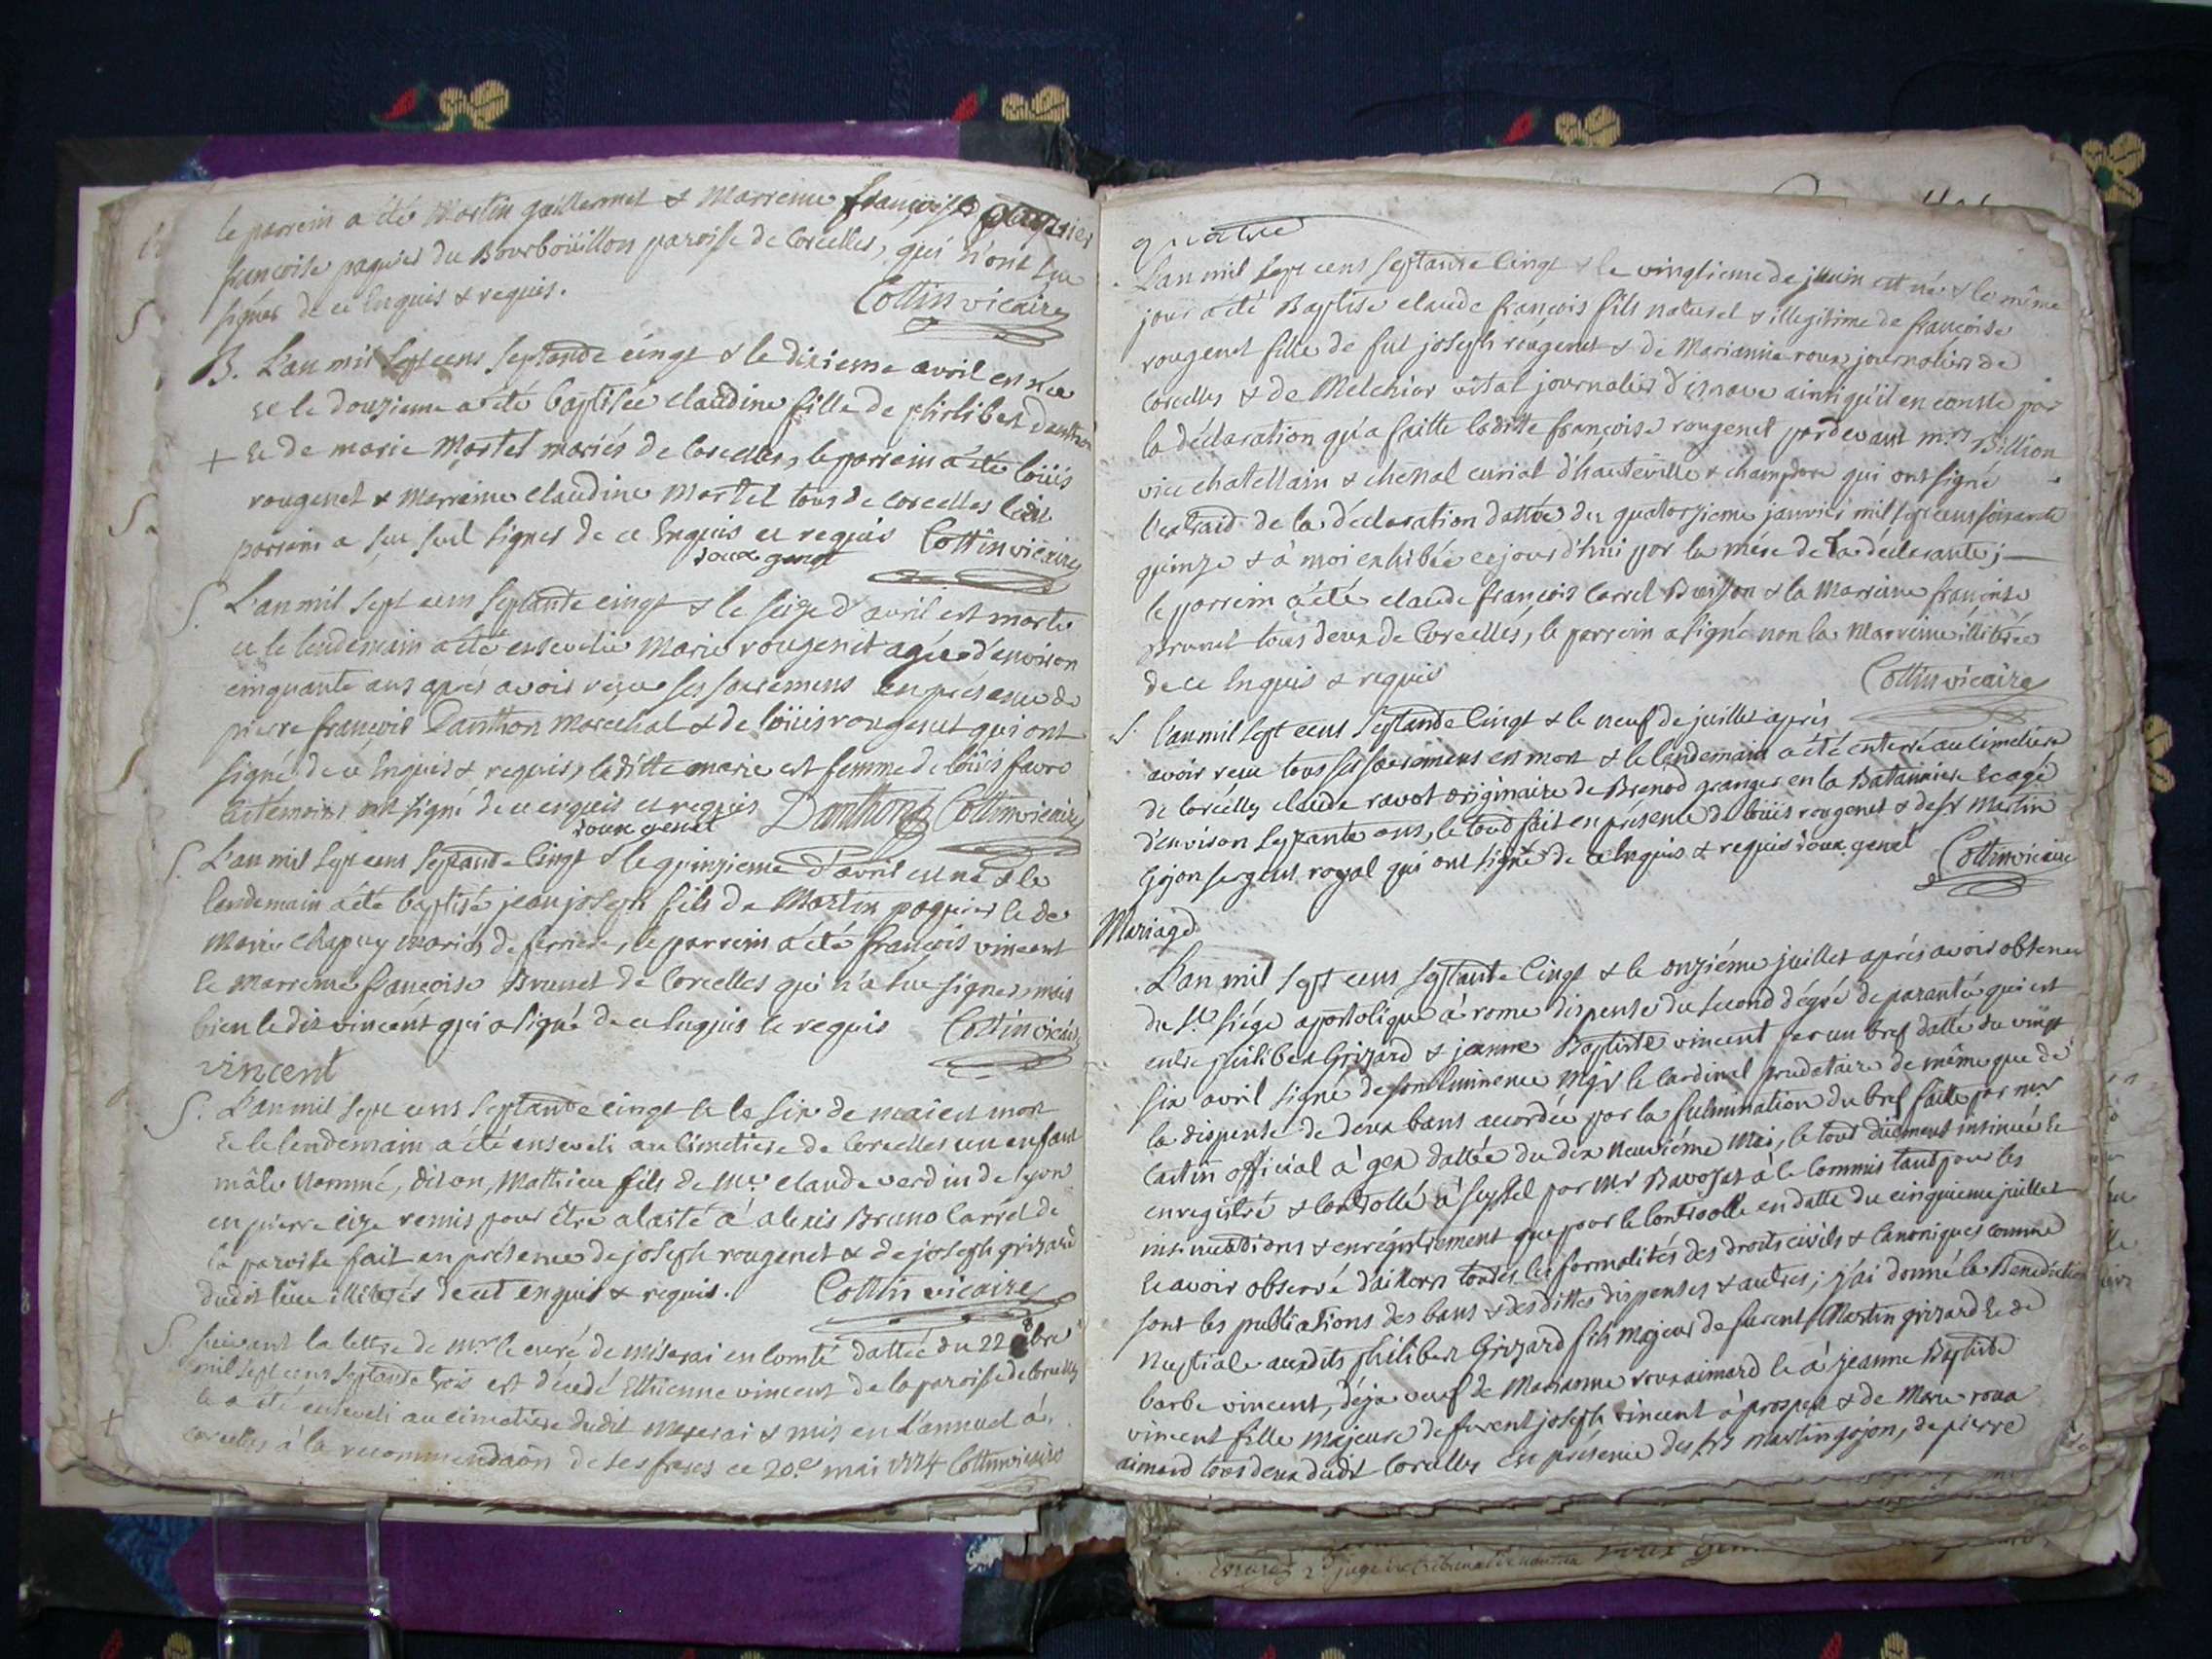 le parrein a été Martin guillermet & Marreine françoise
francoise paguier du Bourboüillon paroisse de Corcelles, qui n'ont sçu
signer de ce Enquis & requis. Cottin vicaire
B. L'an mil sept cens septante cinq & le dixieme avril est née
et le douzieme a été baptisée claudine fille de philibert danthon
+ & de marie Martel mariés de Corcelles, le parrein a été loüis
rougenet & Marreine claudine Martel tous de corcelles ledit
parrein a sçu seul signer de ce Enquis et requis Cottin vicaire
roux genet
S. L'an mil sept cens septante cinq & le seize d'avril est morte
et le lendemain a été ensevelie Marie rougenet agée d'environ
cinquante ans aprés avoir reçue ses sacremens en présence de
pierre françois Danthon marechal & de loüis rougenet qui ont
signé de ce Enquis & requis, laditte marie est femme de loüis favre
les témoins ont signé de ce enquis et requis Danthon Cottin vicaire
roux genet
S. L'an mil sept cens septante cinq & le quinzieme d'avril est né & le
lendemain a été baptisé jean joseph fils de Martin paguier & de
Marie Chapuy mariés de ferriere, le parrein a été françois vincent
& Marreine françoise Brunet de Corcelles qui n'a sçue signer, mais
bien le dit vincent qui a signé de ce Enquis & requis Cottin vicaire
vincent
S. L'an mil sept cens septante cinq & le six de mai est mort
& le lendemain a été enseveli au Cimetiere de Corcelles un enfant
mâle nommé, dit on, Mathieu fils de Mr claude verdin de lyon
en pierre cize remis pour être alaité à alexis Bruno Carrel de
la paroisse fait en présence de joseph rougenet & de joseph grizard
dudit lieu illiterés de cet enquis & requis. Cottin vicaire
S. suivant la lettre de mr le curé de miserai en Comté dattée du 22 8bre
mil sept cens septante trois est décedé Ethienne vincent de la paroisse de Corcelles
& a été enseveli au cimetiere dudit Meserai & mis en l'annuel à
+ corcelles à la recommendaõn de ses freres ce 20.e mai 1774 Cottin vicaire
quatre
L'an mil sept cens septante Cinq & le vingtieme de juin est né & le même
jour a été Baptisé claude françois fils naturel & illegitime de françoise
rougenet fille de fut joseph rougenet & de Marianne roux journaliers de
Corcelles & de Melchior vital journalier d'isnave ainsi qu'il en conste par
la déclaration qu'a faitte laditte françoise rougenet pardevant mrs Billion
vice chatellain & chenal curial d'hauteville & champdore qui ont signé
l'extrait de la déclaration dattée du quatorzieme janvier mil sept cens soixante
quinze & à moi exhibée cejourd'hui par la mére de la déclarante; —
le parrein a été claude françois Carrel Buisson & la Marreine françoise
Brunet tous deux de Corcelles, le parrein a signé non la Marreine illiterée
de ce Enquis & requis Cottin vicaire
S. l'an mil sept cens septante Cinq & le neuf de juillet aprés
avoir reçu tous ses sacremens est mort & le lendemain a été enterré au cimetiere
de Corcelles claude ravot originaire de Brenod granger en la Batainiere & agé
d'environ septante ans, le tout fait en présence de loüis rougenet & de sr Martin
Gojon sergent royal qui ont signé de ce Enquis & requis roux genet Cottin vicaire
Mariage
L'an mil sept cens septante Cinq & le onziéme juillet aprés avoir obtenu
du St. siége apostolique à rome dispense du second dégré de paranté qui est
entre philibert Grizard & jeanne Baptiste vincent par un bref datté du vingt
six avril signé de son Eminence Mgr le Cardinal prodataire de même que de
la dispense de deux bans accordée par la fulmination du bref faite par mr
Castin official à gex dattée du dix neuviéme Mai, le tout düement insinué &
enregistré & Controllé à seyssel par Mr Bavozat à ce Commis tant pour les
insinuations & enrégistrement que pour le Controlle en datte du cinquieme juillet
& avoir observé d'ailleurs toutes les formalités des droits civils & Canoniques comme
sont les publications des bans & desdittes dispenses & autres; j'ai donné la Benediction
Nuptiale auxdits philibert Grizard fils majeur de furent Martin grizard & de
barbe vincent, déja veuf de Marianne roux aimard & à jeanne Baptiste
vincent fille majeure de furent joseph vincent à prosper & de Marie roux
aimard tous deux dudit Corcelles en présence des srs Martin gojon, de pierre